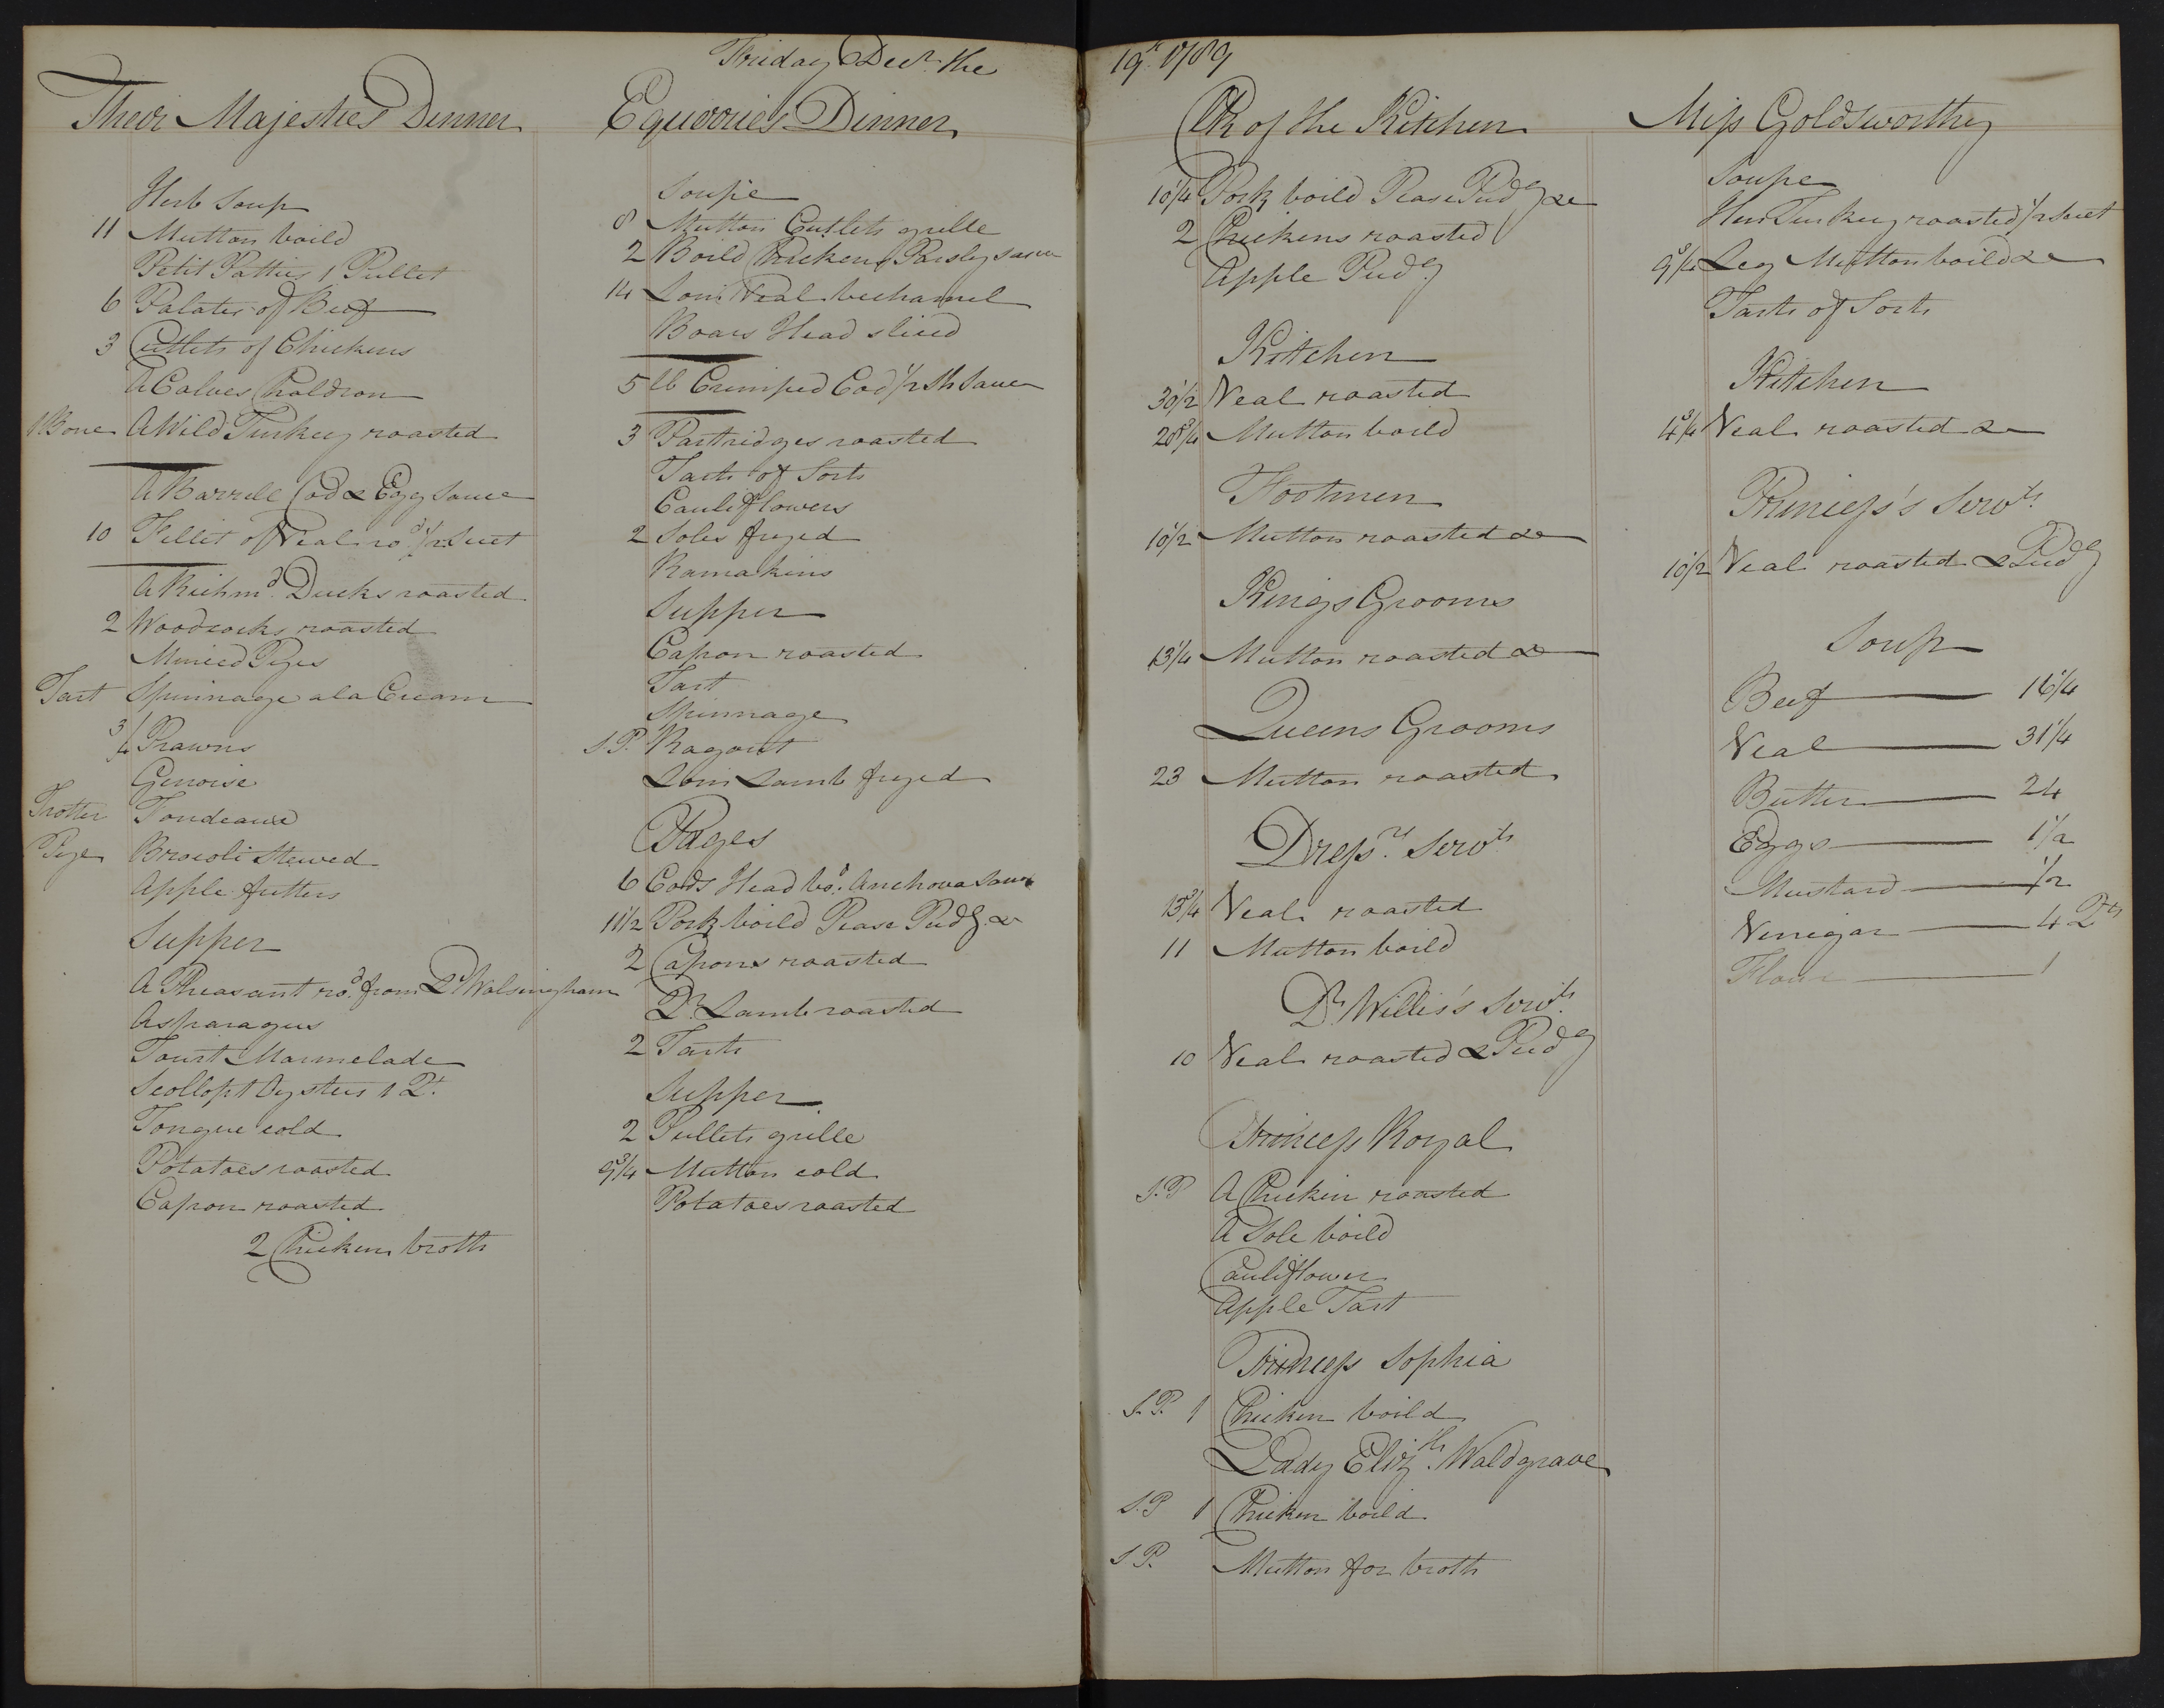 Friday Decr. the
19th. 1789
Their Majesties Dinner
Herb Soup
11 Mutton boild
Petit Patties 1 Pullet
6 Palates of Beef
3 Cutlets of Chickens
A Calves Chaldron
1 Bone A Wild Turkey roasted
A Barrele Cod & Egg Sauce
10 Fillet of Veal rod. 1/2 Suet
A Richmd. Ducks roasted
2 Woodcocks roasted
Minced Pyes
Tart Spinnage a la Cream
3/4 Prawns
Genoise
Trotter Fondeaux
Pye Brocoli Stewed
Apple fritters
Supper
A Pheasant rod. from Ld. Walsingham
Asparagus
Tourt Marmelade
Scollopt Oysters 1 Qt.
Tongue cold
Potatoes roasted
Capon roasted
2 Chickens broth
Equerries Dinner
Soupe
8 Mutton Cutlets grille
2 Boild Chickens Parsley sauce
14 Loin Veal bechamel
Boars Head sliced
5 lb Crimped Cod 1/2 Sh Sauce
3 Partridges roasted
Tarts of Sorts
Cauliflowers
2 Soles fryed
Ramakins
Supper
Capon roasted
Tart
Spinnage
S.P. Ragout
Loin Lamb fryed
Pages
6 Cods Head bod. Anchova Sauce
11 1/2 Pork boild Pease Pudg. &c
2 Capons roasted
Qr. Lamb roasted
2 Tarts
Supper
2 Pullets grille
9 3/4 Mutton cold
Potatoes roasted
Clk of the Kitchen
10 1/4 Pork boild Pease Pudg &c
2 Chickens roasted
Apple Pudg
Kitchen
30 1/2 Veal roasted
28 3/4 Mutton boild
Footmen
10 1/2 Mutton roasted &c
Kings Grooms
13 1/4 Mutton roasted &c
Queens Grooms
23 Mutton roasted
Dressrs. Servts
13 3/4 Veal roasted
11 Mutton boild
Dr. Willis's Servts.
10 Veal roasted & Pudg
Princess Royal
S.P A Chicken roasted
A Sole boild
Cauliflower
Apple Tart
Princess Sophia
S.P. 1 Chicken boild
Lady Elizth. Waldgrave
S.P 1 Chicken boild
S P. Mutton for broth
Miss Goldsworthy
Soupe
Hen Turkey roasted 1/2 Suet
9 3/4 Leg Mutton boild &c
Tarts of Sorts
Kitchen
14 3/4 Veal roasted &c
Princess's Servts.
10 1/2 Veal roasted & Pudg
Soup
Beef 16 1/4
Veal 31 1/4
Butter 24
Eggs 1 1/2
Mustard 1/2
Vinegar 4 Qts
Flour 1